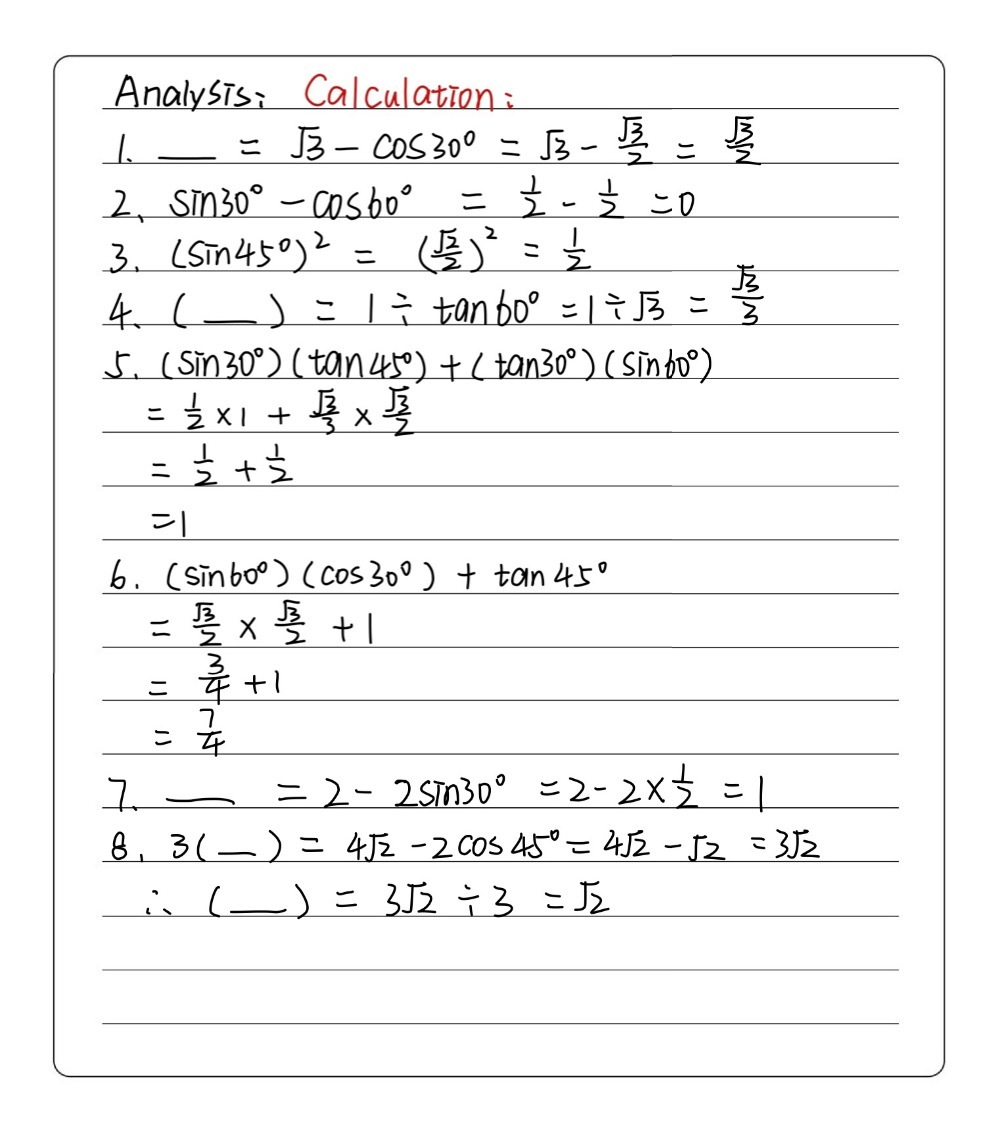 Analysis: Calculation:
1. ___ = √3 - cos30° = √3 - √3/2 = √3/2
2、 sin30° - cos60° = 1/2 - 1/2 = 0
3. (sin45°)² = (√2/2)² = 1/2
4、 ( ___ ) = 1 ÷ tan60° = 1 ÷ √3 = √3/3
5. (sin30°)(tan45°) + (tan30°)(sin60°)
= 1/2 × 1 + √3/3 × √3/2
= 1/2 + 1/2
= 1
6. (sin60°)(cos30°) + tan45°
= √3/2 × √3/2 + 1
= 3/4 + 1
= 7/4
7. ___ = 2 - 2sin30° = 2 - 2 × 1/2 = 1
8. 3( ___ ) = 4√2 - 2cos45° = 4√2 - √2 = 3√2
∴ ( ___ ) = 3√2 ÷ 3 = √2